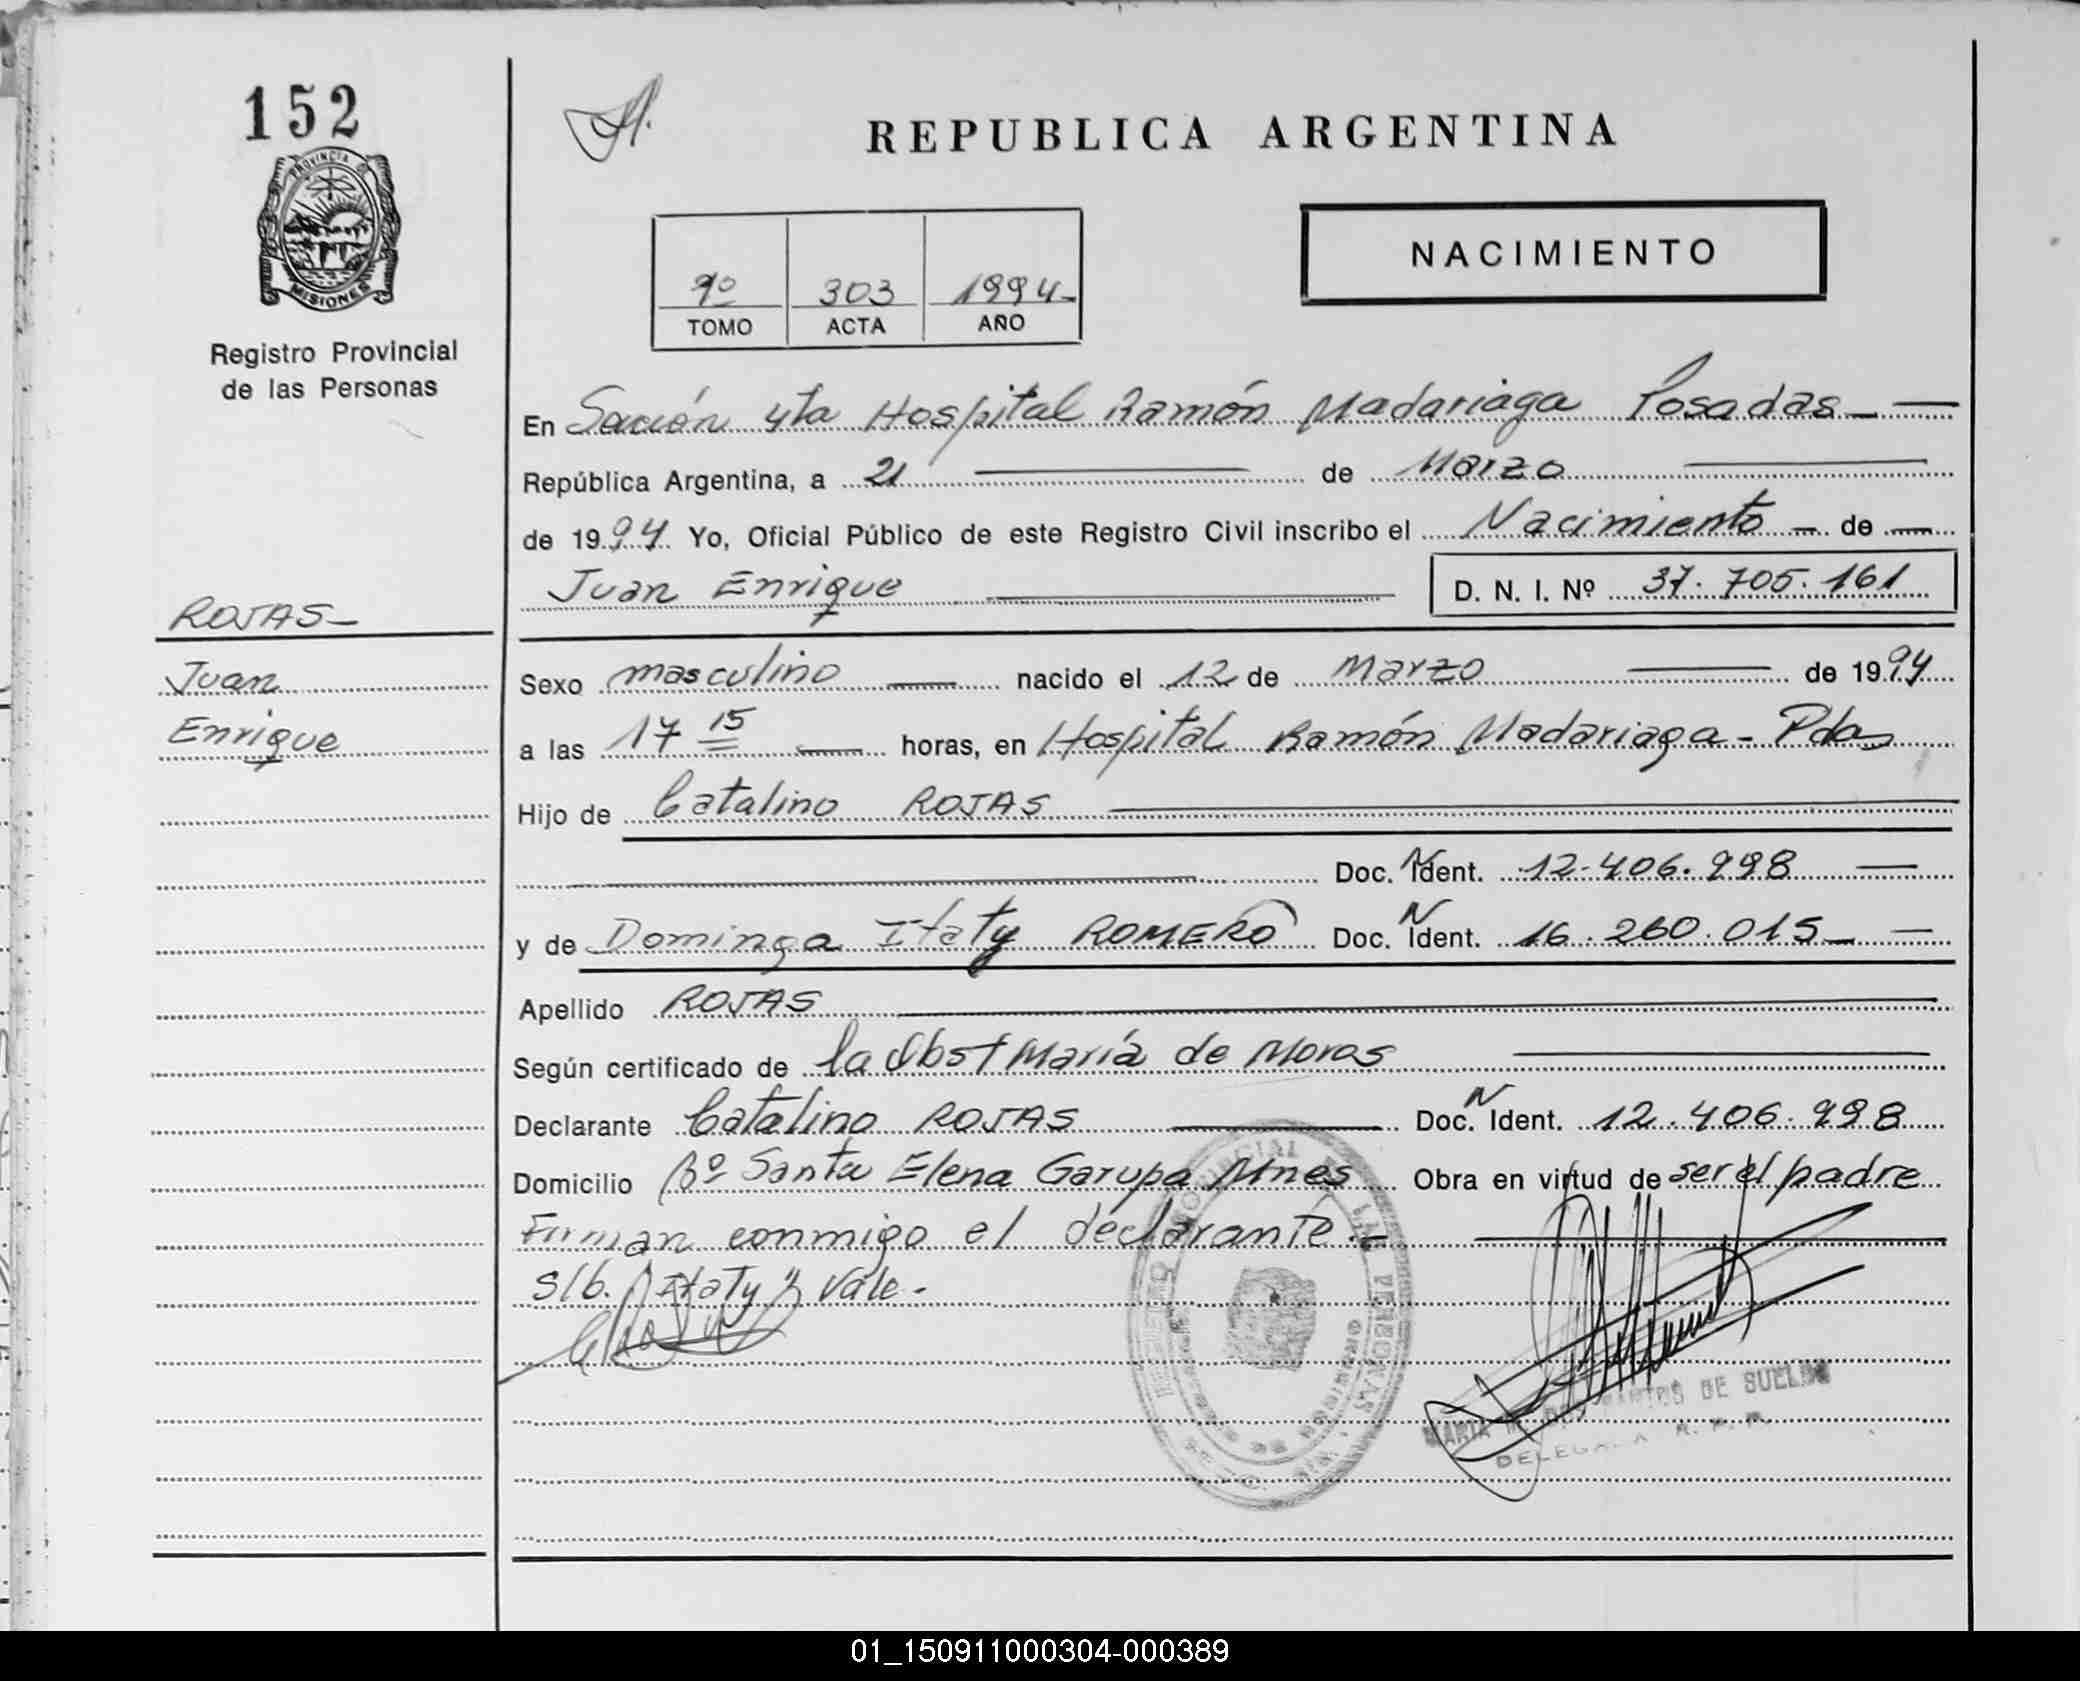 152
PROVINCIA DE
MISIONES
Registro Provincial
de las Personas
ROJAS_
Juan
Enrique
REPUBLICA ARGENTINA
NACIMIENTO
9º 303 1994_
TOMO ACTA AÑO
En Sección 4ta Hospital Ramón Madariaga Posadas_
República Argentina, a 21 de Marzo
de 1994 Yo, Oficial Público de este Registro Civil inscribo el Nacimiento de
Juan Enrique D. N. I. Nº 37.705.161
Sexo masculino nacido el 12 de Marzo de 1994
a las 17 15 horas, en Hospital Ramón Madariaga - Pdas
Hijo de Catalino ROJAS
Doc. N Ident. 12.406.998
y de Dominga Itaty ROMERO Doc. N Ident. 16.260.015_
Apellido ROJAS
Según certificado de la Obst María de Moras
Declarante Catalino ROJAS Doc. N Ident. 12.406.998
Domicilio Bº Santa Elena Garupa Mnes Obra en virtud de ser el padre
Firman conmigo el declarante._
S/b. "Itaty" Vale.
DE SUELDO
R. P. P.
01_150911000304-000389